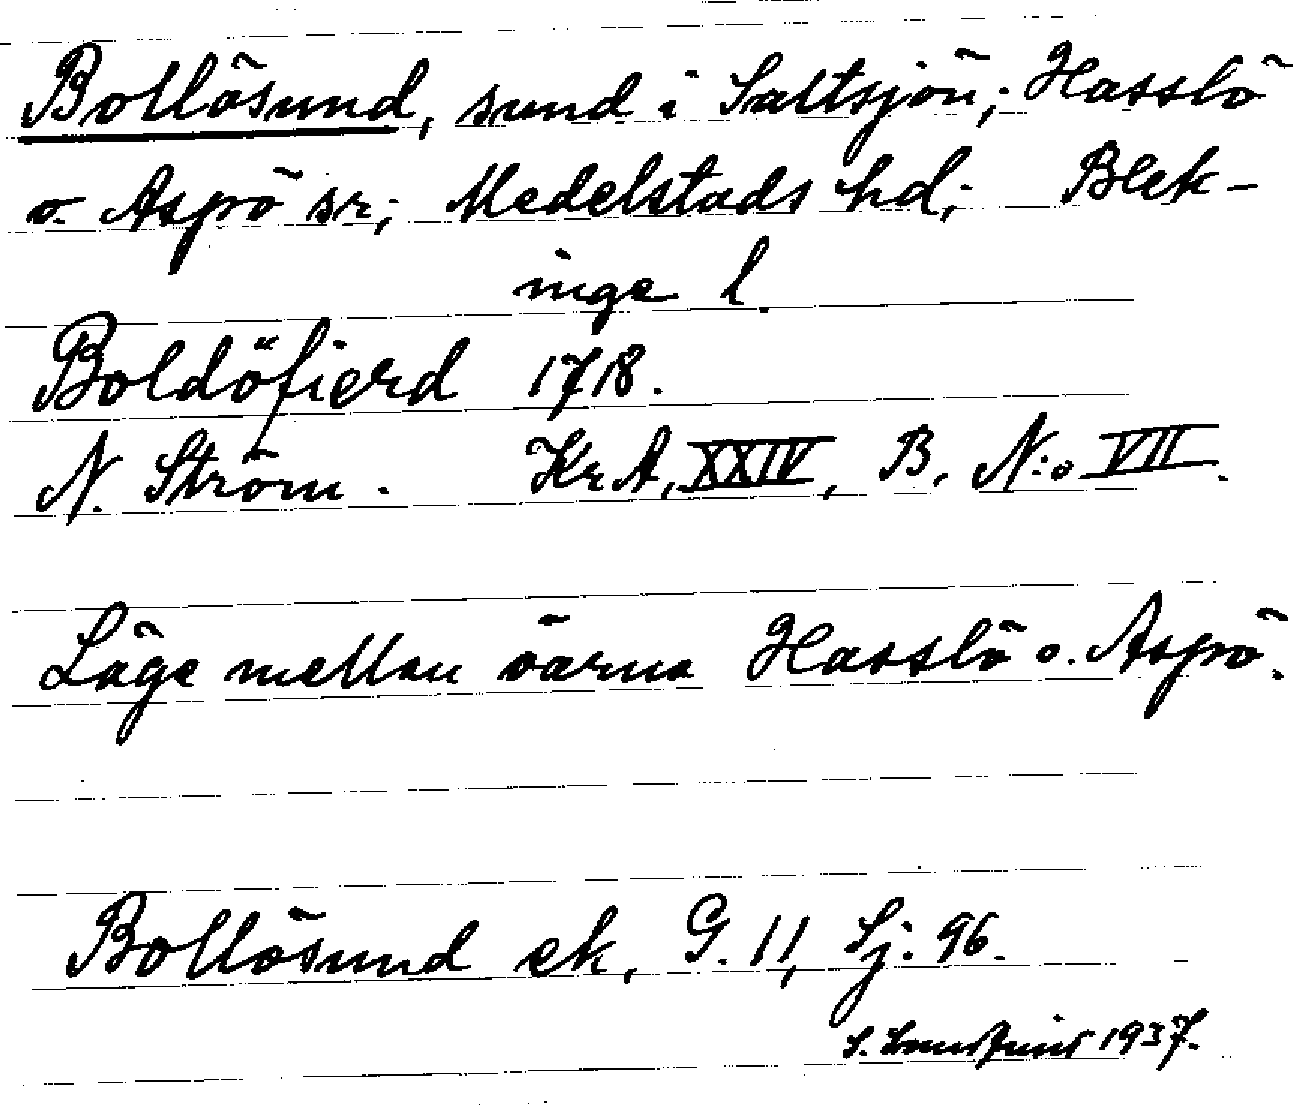 Bollösund, sund i Saltsjön; Hasslö
o. Aspö sr; Medelstads hd; Blek-
inge l.
Boldöfierd 1718.
N. Ström. KrA, XXIV, B, N:o VII.
Läge mellan öarna Hasslö o. Aspö.
Bollösund ek, G. 11, Sj. 96.
S. 1937.